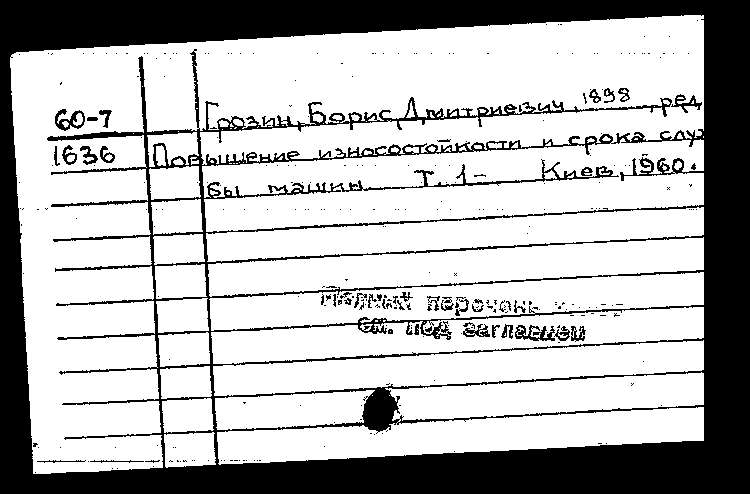 60-7 Грозин, Борис Дмитриевич, 1898 , ред
1636 Повышение износостойкости и срока служ
бы машин Т. 1- Киев, 1960.
перечень
см. под заглавием